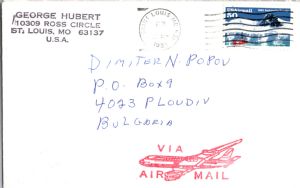 GEORGE HUBERT
10309 ROSS CIRCLE
ST. LOUIS, MO 63137
U.S.A.
ST LOUIS MO
USA
50
DIMITER N. POPOV
P.O. BOX 9
4023 PLOUDIV
BULGARIA
VIA
AIR MAIL